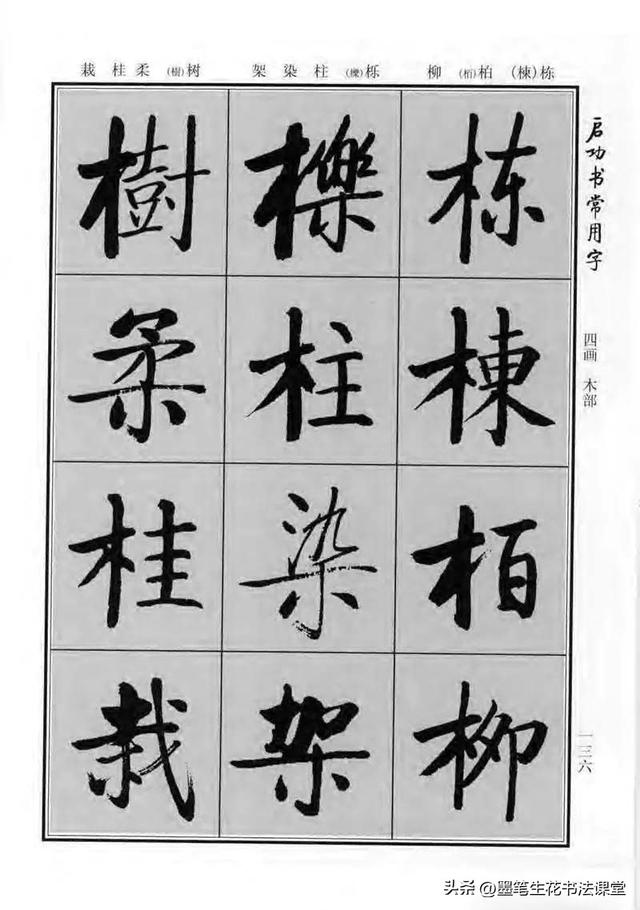 启功书常用字
四画 木部
一三六
栋(棟) 柏(栢) 柳
栎(櫟) 柱 染 架
树(樹) 柔 桂 栽
栋棟柏柳
櫟柱染架
樹柔桂栽
头条 @墨笔生花书法课堂